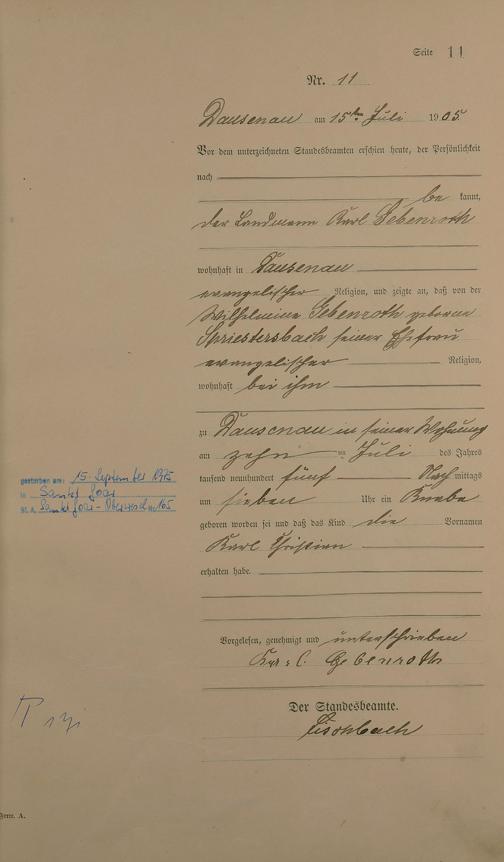 Seite 11
Nr. 11
Dausenau am 15ten Juli 1905.
Vor dem unterzeichneten Standesbeamten erschien heute, der Persönlichkeit
nach
be kannt,
der Landmann Karl Gebenroth
wohnhaft in Dausenau
evangelischer Religion, und zeigte an, daß von der
Wilhelmine Gebenroth geborene
Spriestersbach seiner Ehefrau
evangelischer Religion,
wohnhaft bei ihm
zu Dausenau in seiner Wohnung
am zehn ten Juli des Jahres
tausend neunhundert fünf Nach mittags
um sieben Uhr ein Knabe
geboren worden sei und daß das Kind die Vornamen
Karl Christian
erhalten habe.
gestorben am: 15. September 1975
in Sankt Goar
St. A. Sankt Goar-Oberwesel
Vorgelesen, genehmigt und unterschrieben
Karl Gebenroth
Der Standesbeamte.
Fischbach
Form. A.